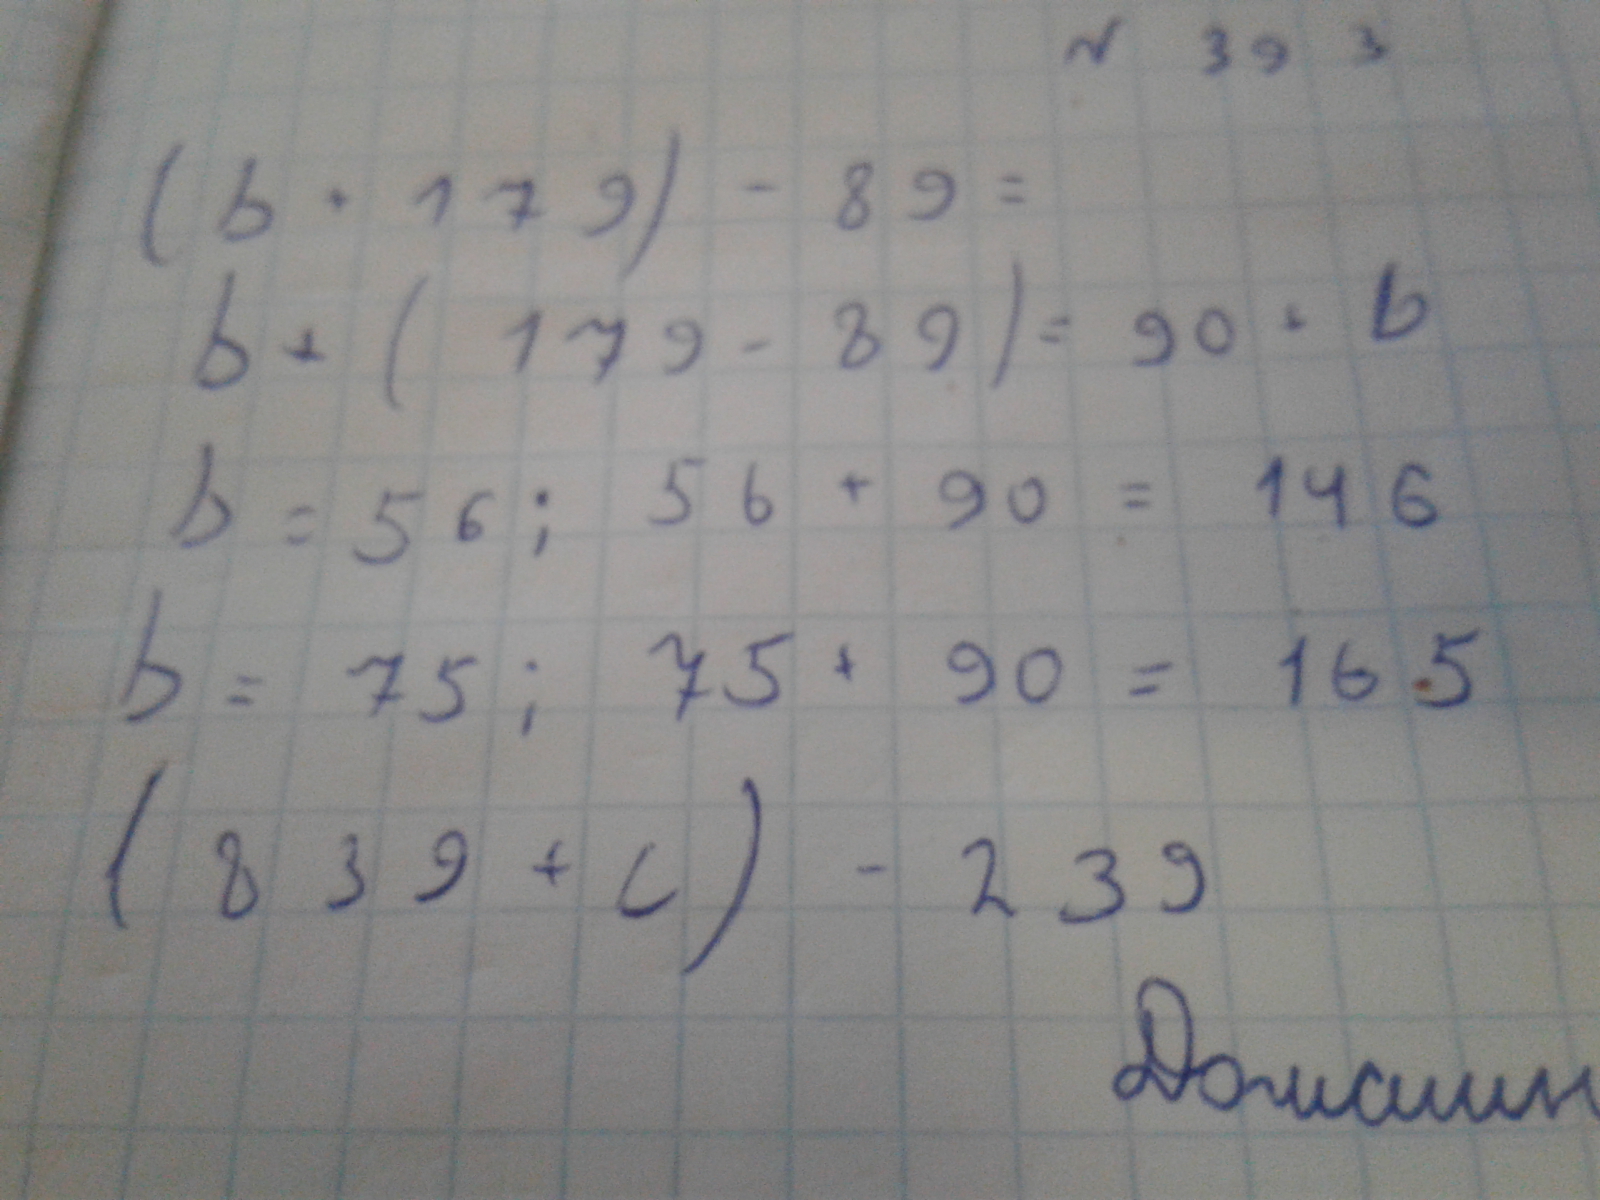 № 393
(b + 179) - 89 =
b + (179 - 89) = 90 + b
b = 56; 56 + 90 = 146
b = 75; 75 + 90 = 165
(839 + c) - 239
Домашн